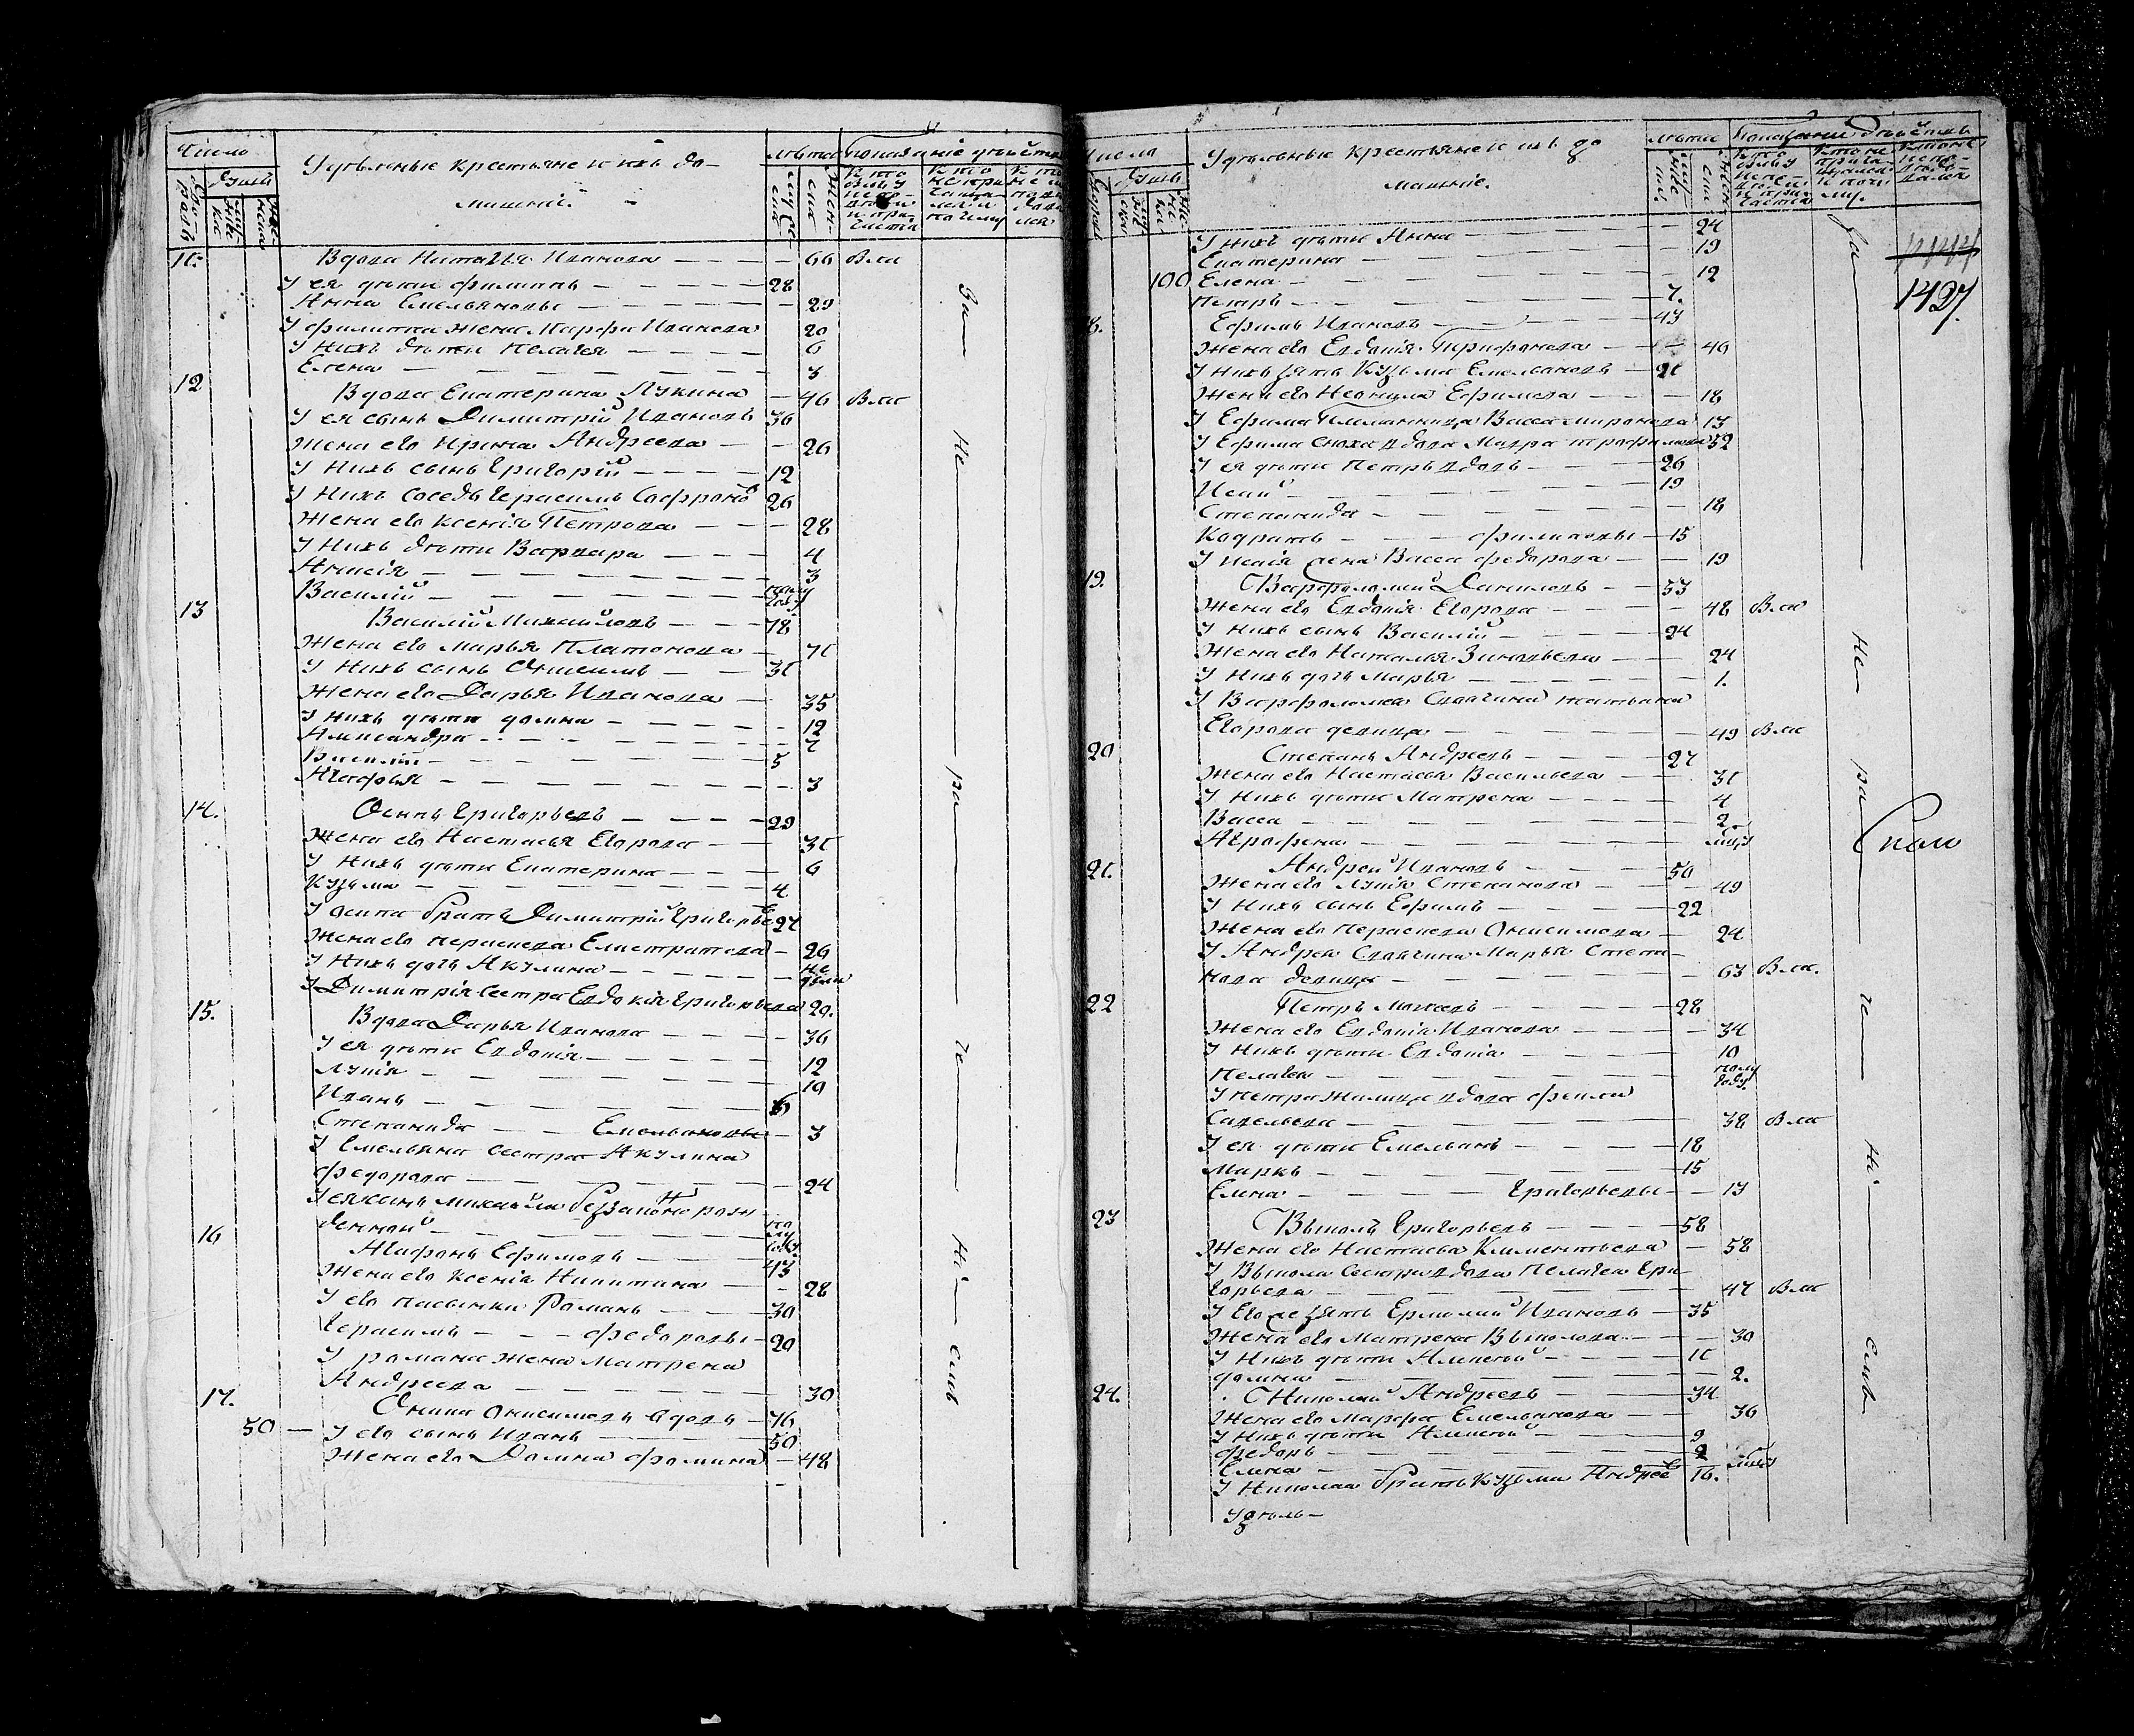 Число
Удѣльные крестьяне и ихъ до-
машніе.
лѣта
Показаніе дѣйства
Душъ
11.
Вдова Наталья Иванова — 66 Вла
У ея дѣти Филипъ — 28
Анна Емельяновы — 20
У Филиппа жена Марфа Иванова 20
У нихъ дѣти Пелагея — 6
Елена — 3
12
Вдова Екатерина Лукина — 46 Вла
У ея сынъ Димитрій Ивановъ 36
Жена его Ирина Андреева — 26
У нихъ сынъ Григорій — 12
У нихъ соседъ Герасимъ Софроно 26
Жена его Ксенія Петрова — 28
У нихъ дѣти Варвара — 4
Анисія — 3
Василій — полу году
13
Василій Михайловъ — 78
Жена его Марья Платонова —
У нихъ сынъ Онисимъ —
Жена его Дарья Иванова — 35
У нихъ дѣти Домна — 12
Александра — 7
Василій — 5
Агафья — 3
14.
Осипъ Григорьевъ — 29
Жена его Настасья Егорова —
У нихъ дѣти Екатерина — 6
Кузьма — 4
У Осипа братъ Димитрій Григорье 27
Жена его Параскева Елистратова — 26
У нихъ дочь Акулина — не дели
У Димитрія сестра Евдокія Григорьева 20.
15.
Вдова Дарья Иванова — 36
У ея дѣти Евдокія — 12
Лукія — 10
Иванъ — 6
Степанида — Емельяновы — 3
У Емельяна сестра Акулина
Федорова — 24
У ея сынъ Михайла безаконно рож
денной — полу году
16
Агафонъ Ефимовъ — 43
Жена его Ксенія Никитина — 28
У его пасынки Романъ — 30
Герасимъ — Федоровы — 20
У Романа жена Матрена
Андреева — 30
17.
Онисимовъ вдовъ — 76
50 — У его сынъ Иванъ — 50
Жена его Домна Фомина — 48
За — не — ра — че — ні — емъ
Число
Удѣльные крестьяне и ихъ до
машніе.
лѣта
Показаніе дѣйствъ
Душъ
1427.
У нихъ дѣти Анна — 24
Екатерина — 19
100 Елена — 12
Петръ — 7.
18.
Ефимъ Ивановъ — 43
Жена его Евдокія Трифонова — 46
У нихъ зять Кузьма Емельяновъ —
Жена его Неонила Ефимова — 18
У Ефима племянница Васса Миронова 13
У Ефима сноха вдова Мавра Трофимова 52
У ея дѣти Петръ вдовъ — 26
Исай — 19
Степанида — 18
Кодратъ — Филиповы — 15
У Исаія жена Васса Федорова — 19
19.
Варфоломей Даниловъ — 53
Жена его Евдокія Егорова — 48 Вла
У нихъ сынъ Василій — 24
Жена его Наталья Зиновьева — 24
У нихъ дочь Марья — 1.
У Варфоломея своячина Татьяна
Егорова девица — 49 Вла
20
Степанъ Андреевъ — 27
Жена его Настасья Васильева —
У нихъ дѣти Матрена — 4
Васса — 2.
Аграфена —
21.
Андрей Ивановъ — 50
Жена его Лукія Степанова — 49
У нихъ сынъ Ефимъ — 22
Жена его Параскева Онисимова — 24
У Андрея своячина Марья Степа-
нова девица — 63 Вла.
22
Петръ — 28
Жена его Евдокія Иванова — 34
У нихъ дѣти Евдокія — 10
Пелагея — полу году.
У Петра жилица вдова Фекла
Савельева — 38 Вла
У ея дѣти Емельянъ — 18
Маркъ — 15
Елена — Григорьевы — 13
23
Григорьевъ — 58
Жена его Настасья Климентьева — 58
сестра вдова Пелагея Гри-
горьева — 47 Вла
У его зять Ермолай Ивановъ — 35
Жена его Матрена — 30
У нихъ дѣти Алексей —
Домна — 2.
24.
Николай Андреевъ — 34
Жена его Марфа Емельянова — 36
У нихъ дѣти Алексей — 9
Федоръ — 2
Елена —
У Николая братъ Кузьма Андрее 16.
Удѣль-
За — не — ра — че — ні — емъ